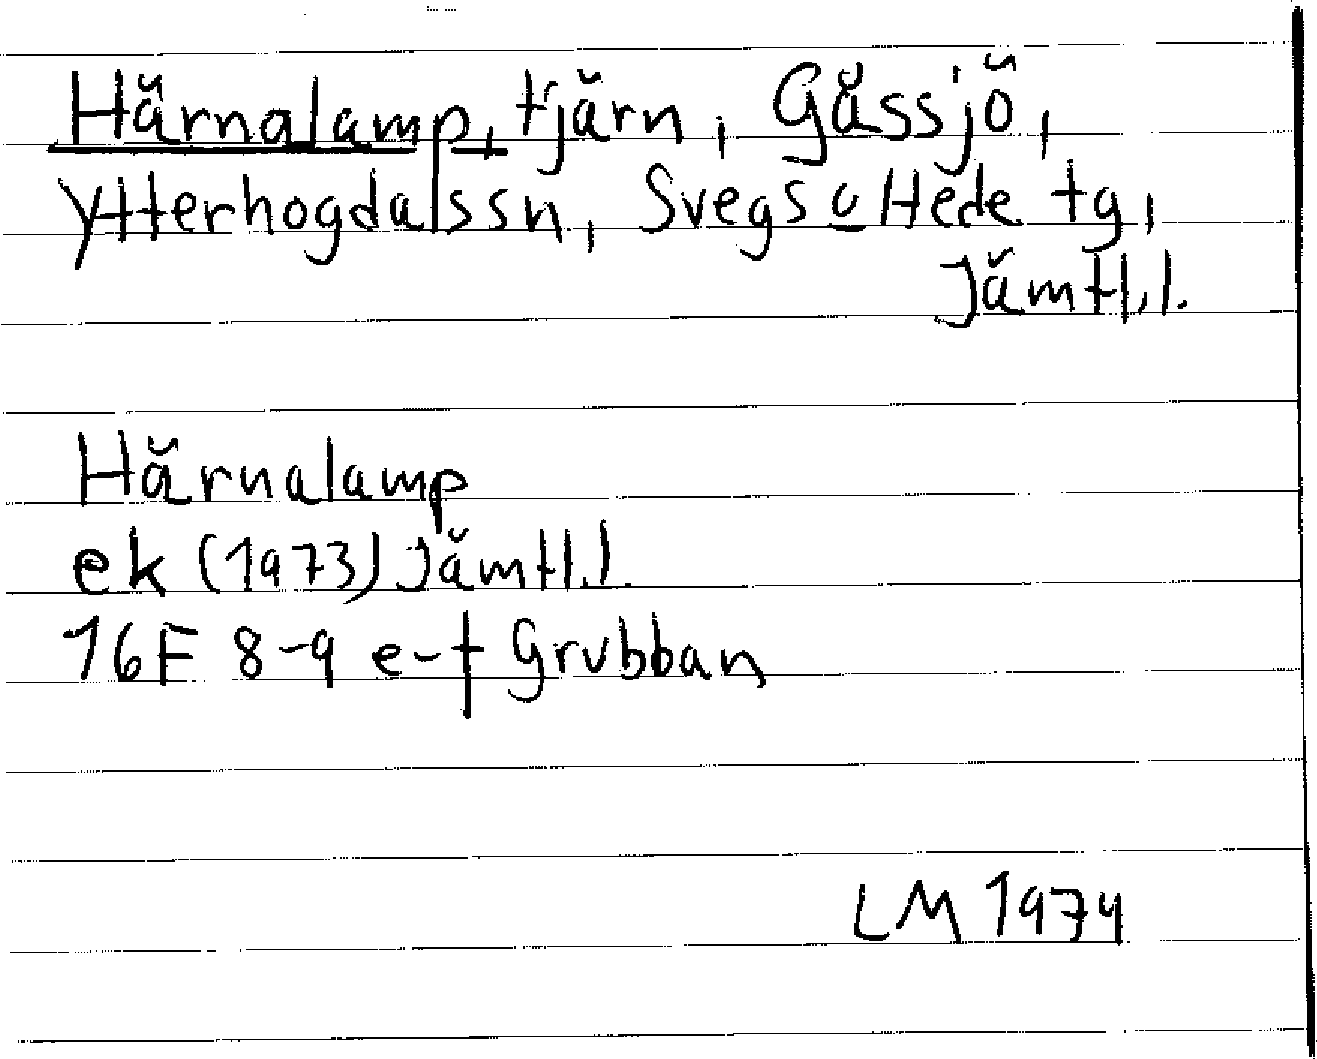 Härnalamp, tjärn, Gåssjö,
Ytterhogdalssn, Svegs o Hede tg,
Jämtl.l.
Härnalamp
ek (1973) Jämtl.l.
16F 8-9 e-f Grubban
LM 1974